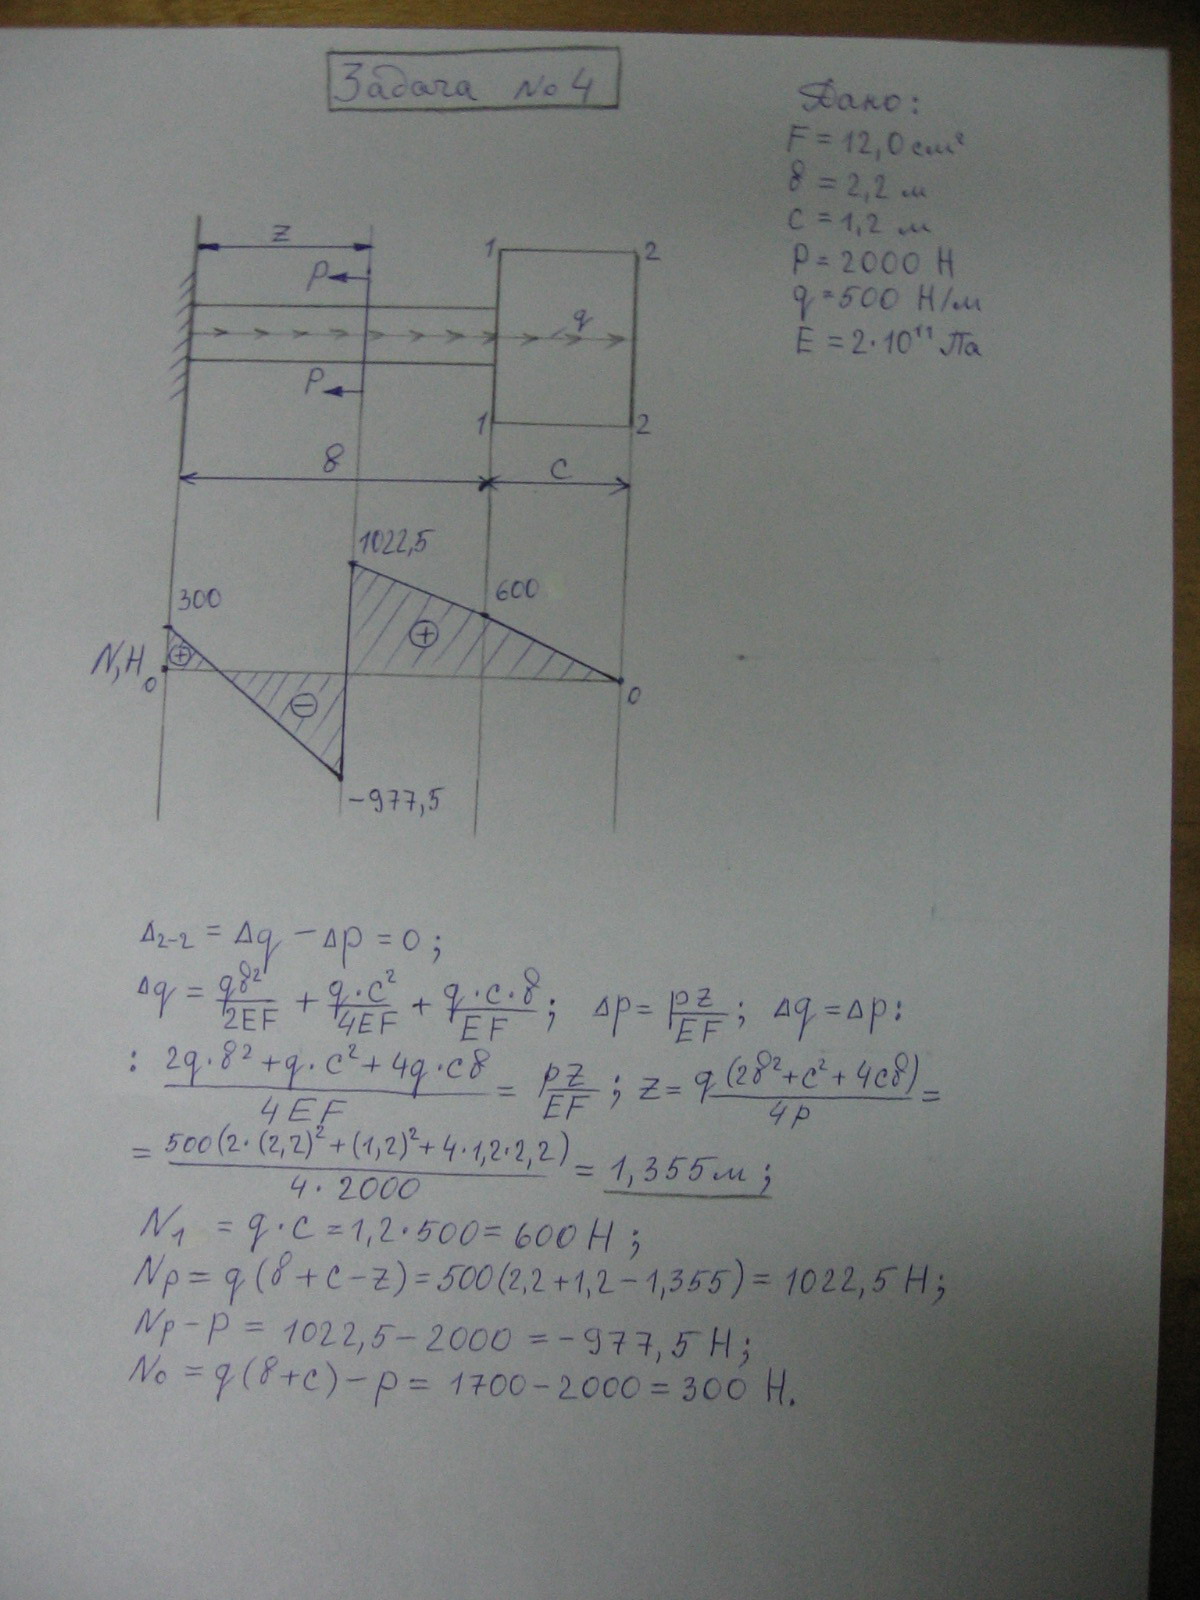 Задача №4
Дано:
F = 12,0 см²
в = 2,2 м
c = 1,2 м
P = 2000 Н
q = 500 Н/м
E = 2·10¹¹ Па
z
P
1
2
q
P
1
2
в
c
1022,5
300
600
+
+
N,H
0
−
0
−977,5
Δ₂₋₂ = Δq − Δp = 0 ;
Δq = qв²/2EF + q·c²/4EF + q·c·в/EF ; Δp = pz/EF ; Δq = Δp :
: (2q·в² + q·c² + 4q·cв)/4EF = pz/EF ; z = q(2в² + c² + 4cв)/4p =
= 500(2·(2,2)² + (1,2)² + 4·1,2·2,2)/4·2000 = 1,355 м ;
N₁ = q·c = 1,2·500 = 600 Н ;
Np = q(в + c − z) = 500(2,2 + 1,2 − 1,355) = 1022,5 Н ;
Np − p = 1022,5 − 2000 = −977,5 Н ;
N₀ = q(в + c) − p = 1700 − 2000 = 300 Н.